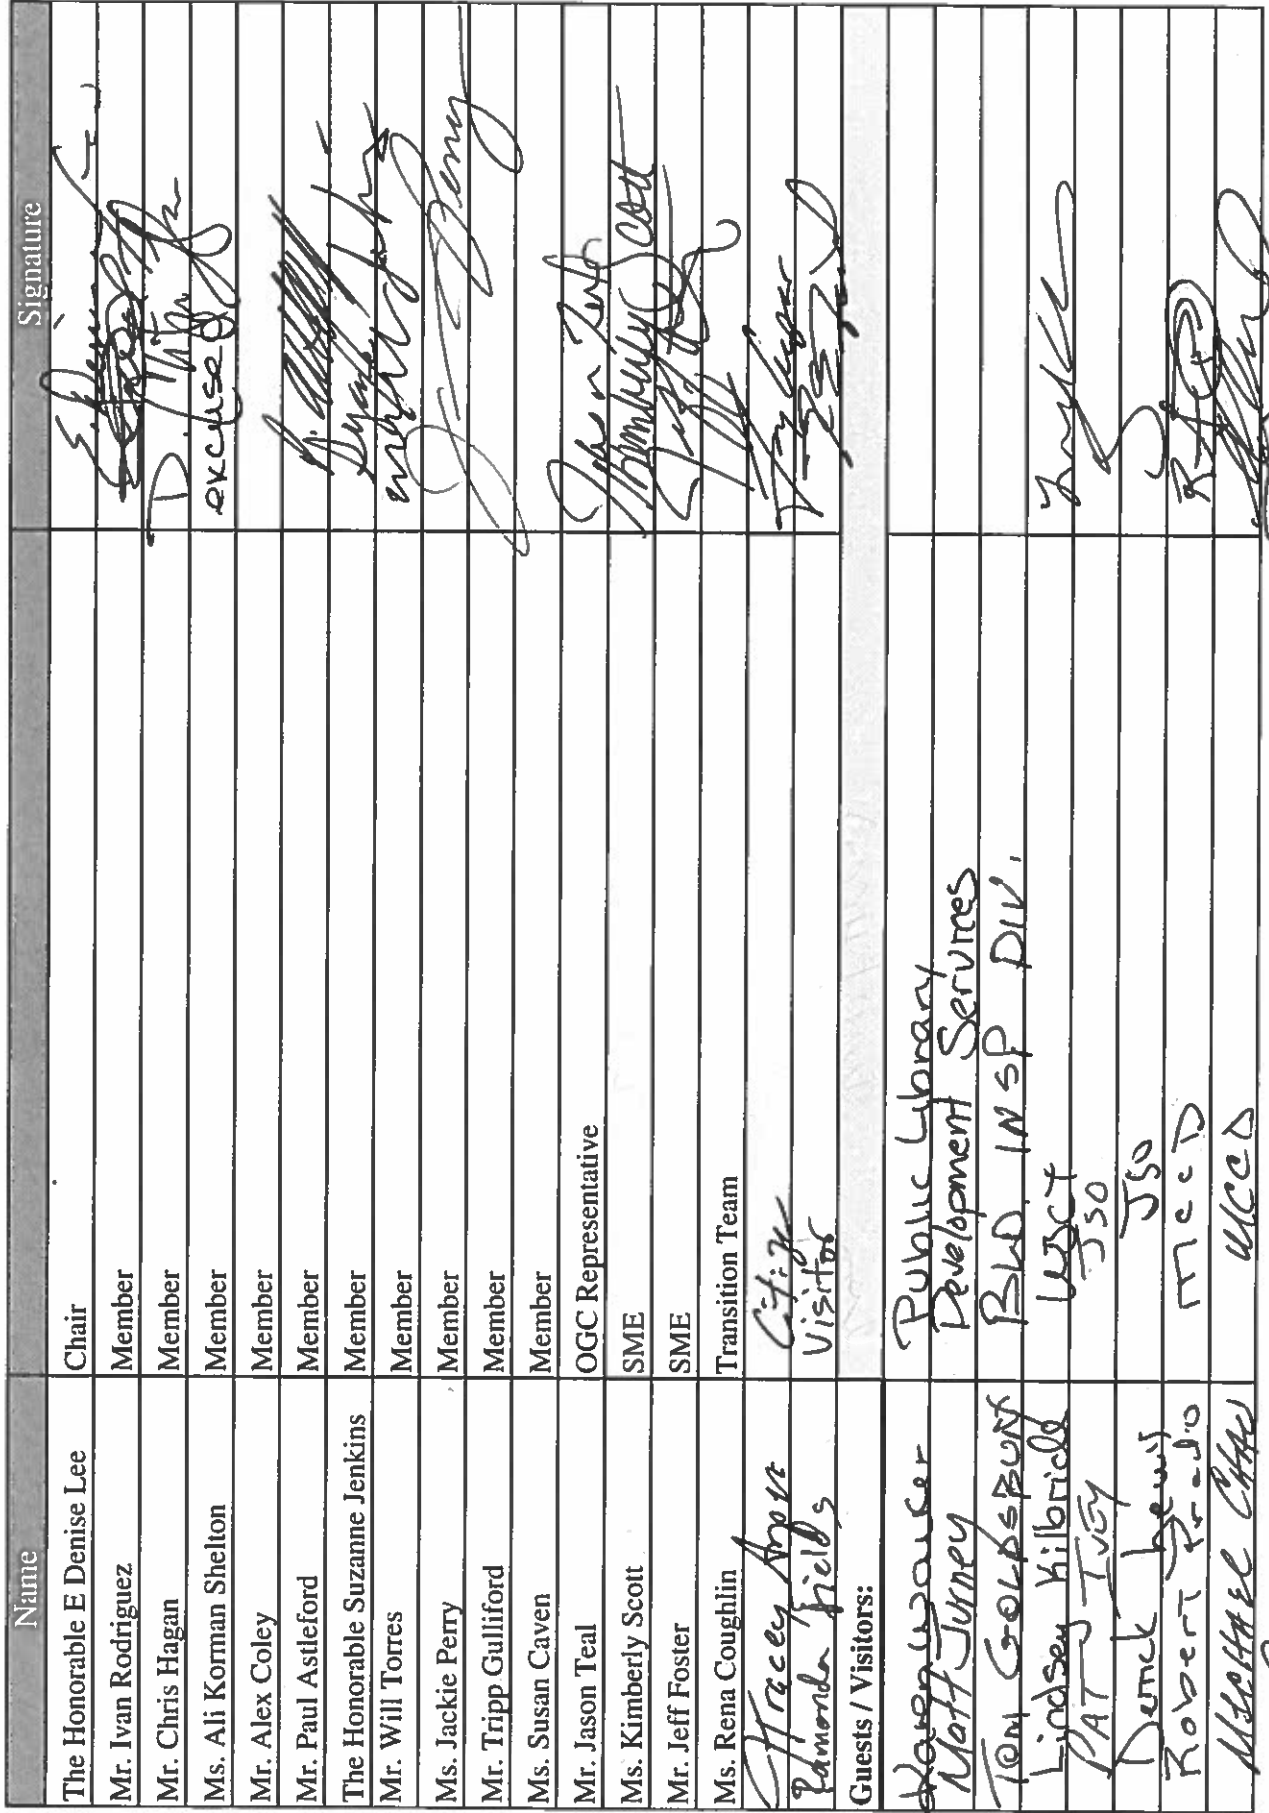 Name Signature
The Honorable E Denise Lee Chair
Mr. Ivan Rodriguez Member
Mr. Chris Hagan Member
Ms. Ali Korman Shelton Member excused
Mr. Alex Coley Member
Mr. Paul Astleford Member
The Honorable Suzanne Jenkins Member
Mr. Will Torres Member
Ms. Jackie Perry Member
Mr. Tripp Gulliford Member
Ms. Susan Caven Member
Mr. Jason Teal OGC Representative
Ms. Kimberly Scott SME Kimberly Scott
Mr. Jeff Foster SME
Ms. Rena Coughlin Transition Team
Tracey
Ramonda Fields Visitor
Guests / Visitors:
Karen Walker Public Library
Matt Jurney Development Services
Tom GOLDSBURY BLD INSP DIV.
Lindsey Kilbride WJCT
PAT IVEY JSO
Derrick Lewis JSO
Robert Prado MCCD
MICHAEL CHAO MCCD